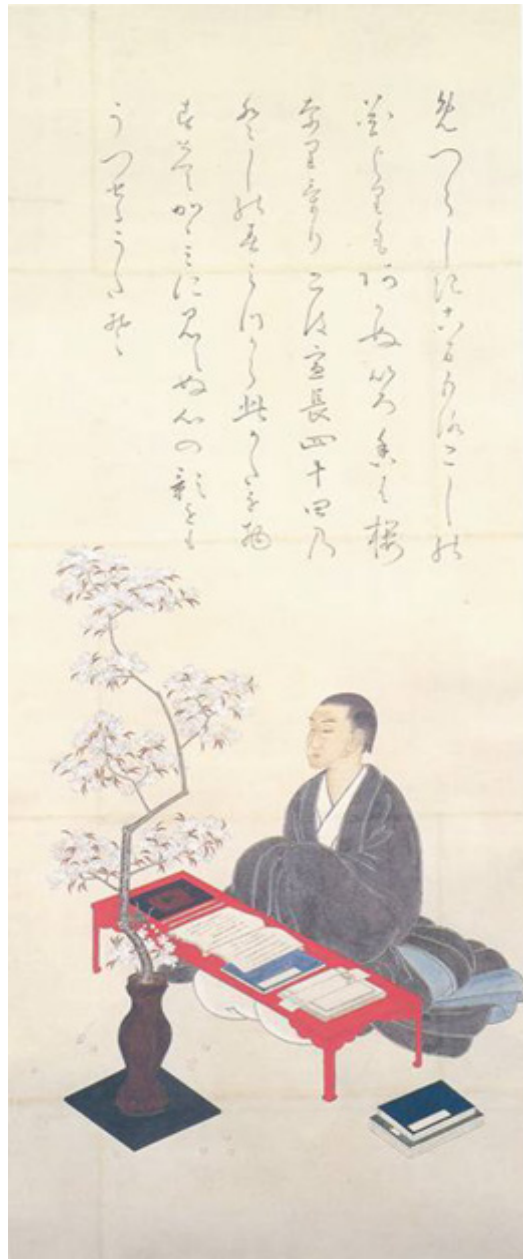 めつらしきこまもろこしの
花よりもあかぬいろ香は桜
なりけり こは宣長四十四の
としの みつから此かたを物
すとてかゝみに見えぬ心の影をも
うつせるうたそ